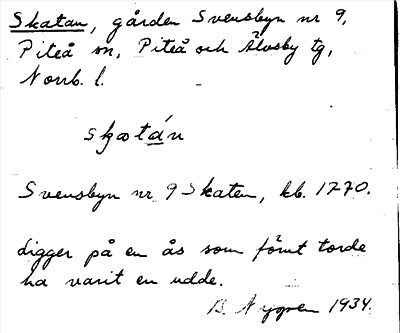 Skatan, gården Svensbyn nr 9,
Piteå sn, Piteå och Älvsby tg,
Norrb. l.
skatán
Svensbyn nr 9 Skaten, kb. 1770.
Ligger på en ås som förut torde
ha varit en udde.
B. Nygren 1934.